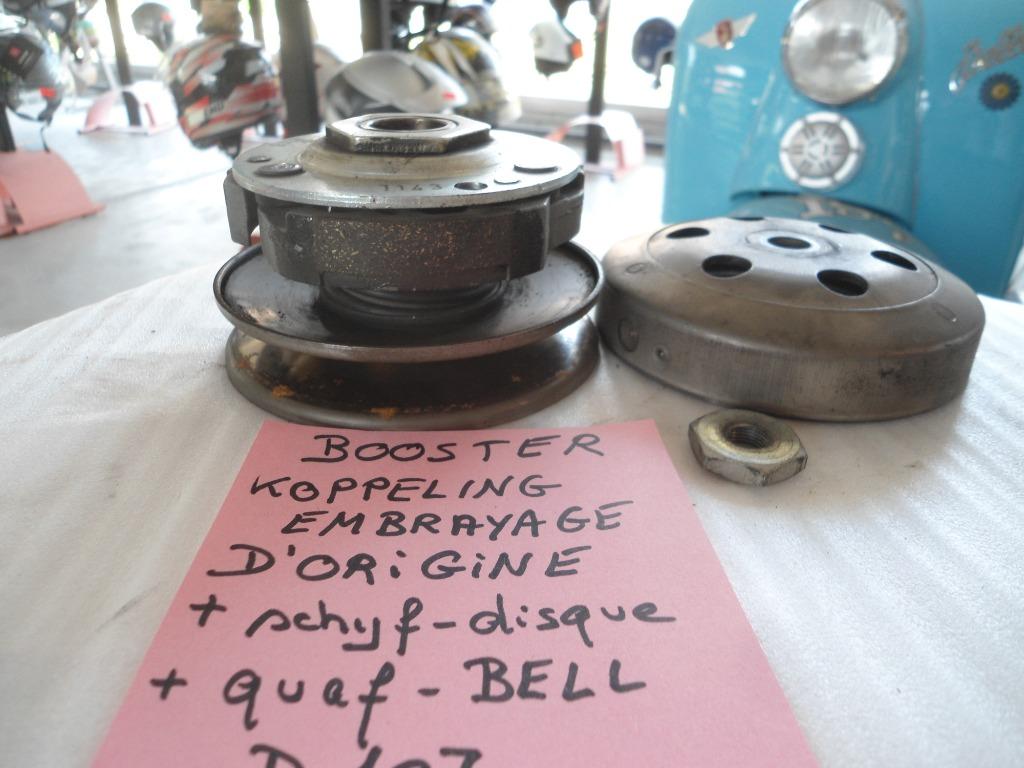 1143
BOOSTER
KOPPELING
EMBRAYAGE
D'ORiGiNE
+ schyf-disque
+ quaf-BELL
D 107